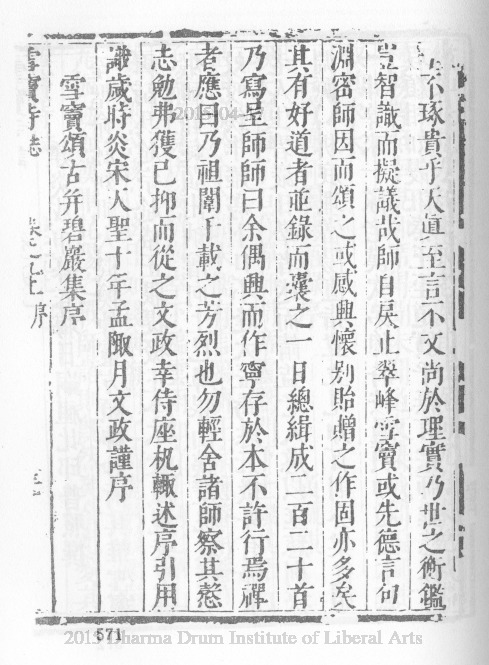 不琢貴乎天真至言不文尚於理實乃世之衡鑑
豈智識而擬議哉師自戾止翠峰雪竇或先德言句
淵密師因而頌之或感興懷別貽贈之作固亦多矣
其有好道者並錄而囊之一日總緝成二百二十首
乃寫呈師師曰余偶興而作寧存於本不許行焉禪
者應曰乃祖闡千載之芳烈也勿輕舍諸師察其慤
志勉弗獲已抑而從之文政幸侍座机輙述序引用
識歲時炎宋天聖十年孟陬月文政謹序
雪竇頌古并碧巖集序
雪竇寺誌 序
2015/04
571
Dharma Drum Institute of Liberal Arts